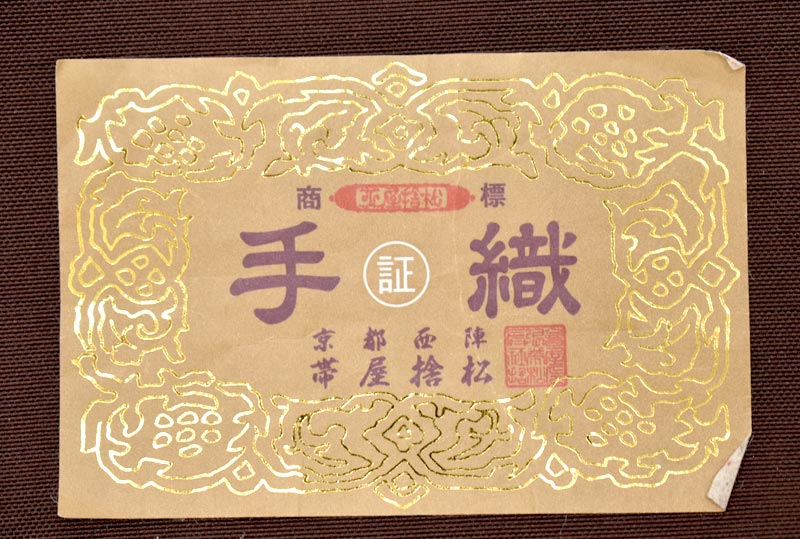 商 標
手 証 織
京都西陣
帯屋捨松